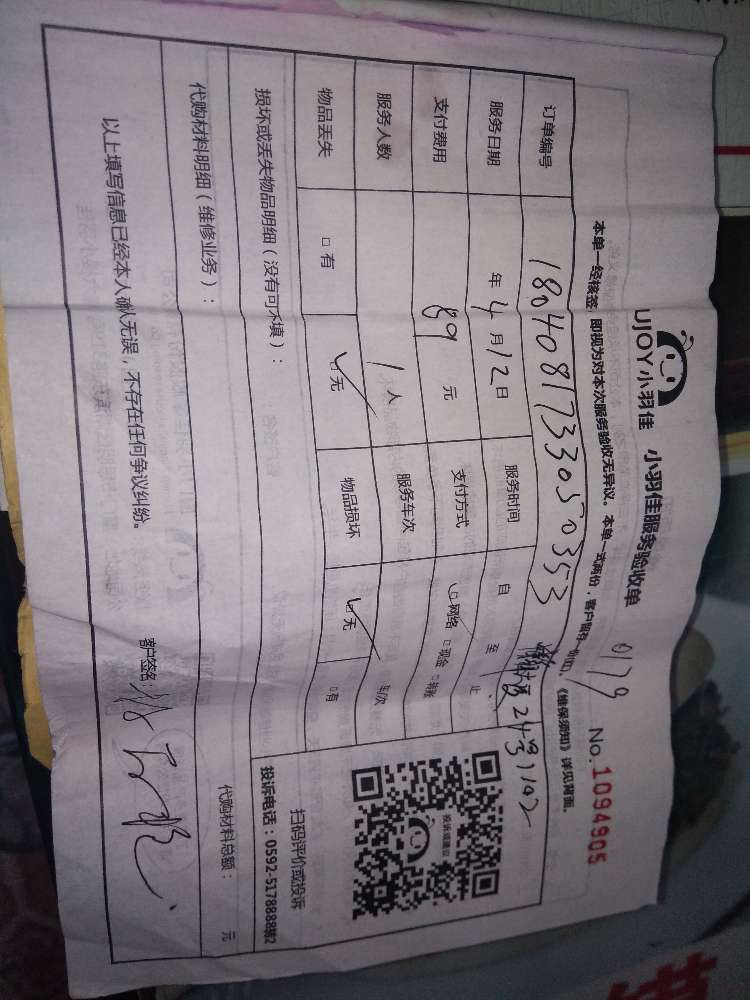 UJOY小羽佳 小羽佳服务验收单 0179 No.1094905
本单一经核签,即视为对本次服务验收无异议。本单一式两份,客户留存 《维保须知》详见背面。
订单编号 1804081733050353 24号1102
服务日期 年4月12日 服务时间 自 至 止
支付费用 89元 支付方式 网络 □现金 □转账
服务人数 1人 服务车次 车/次
物品丢失 □有 ☑无 物品损坏 ☑无 □有
损坏或丢失物品明细(没有可不填):
投诉或建议
扫码评价或投诉
投诉电话:0592-5178888转2
代购材料明细(维修业务): 代购材料总额: 元
以上填写信息已经本人确认无误,不存在任何争议纠纷。 客户签名: